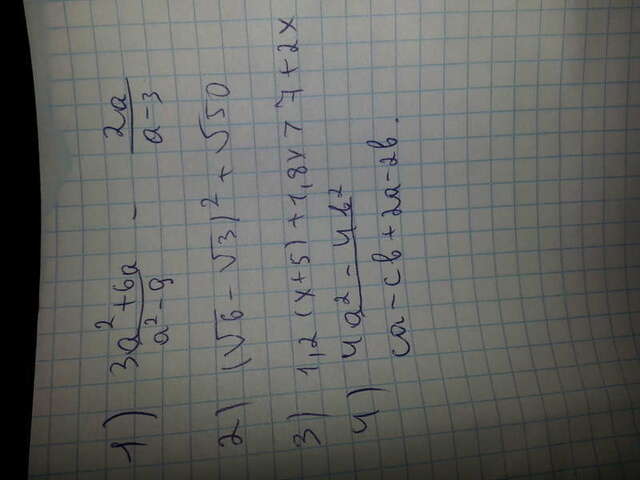 1) 3a²+6a/a²-9 - 2a/a-3
2) (√6 - √3)² + √50
3) 1,2(x+5)+1,8x>7+2x
4) 4a²-4b²/ca-cb+2a-2b.